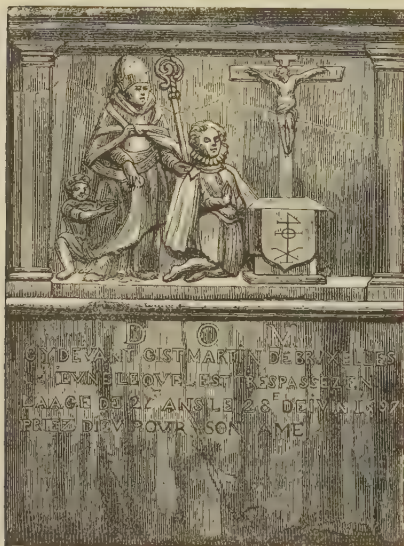 D O M
CY DEVANT GIST MARTIN DE BRVXELLES
IEVNE LEQVEL EST TRESPASSEZ EN
LAAGE DE 27 ANS LE 28E DE IVIN 1597
DIEV POVR SON AME